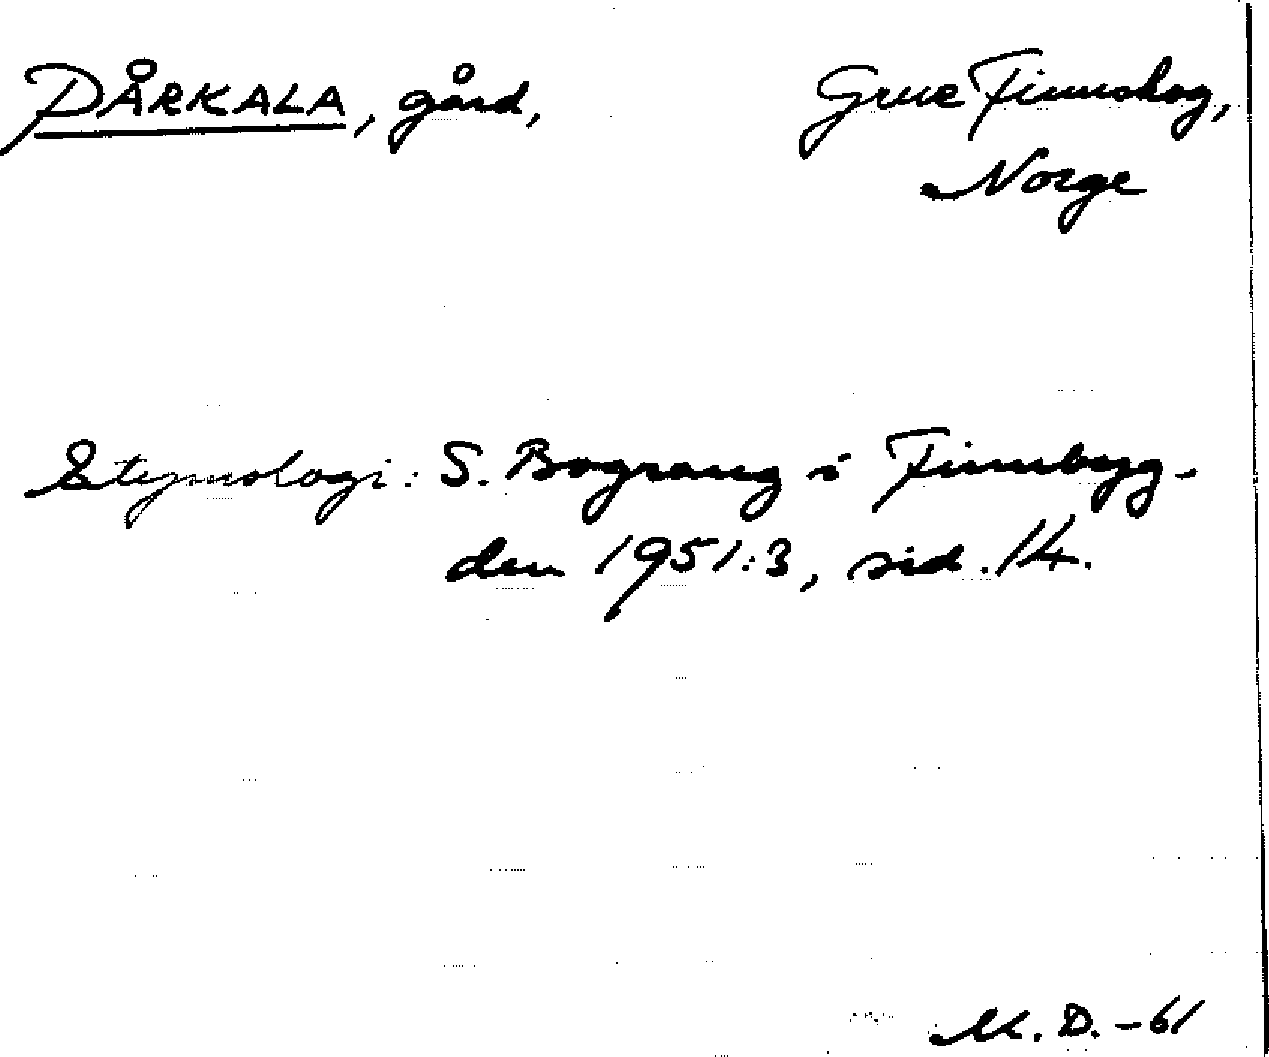 PÅRKALA, gård, Grue Finnskog,
Norge
Etymologi: S. Bograng i Finnbygg-
den 1951:3, sid. 14.
M. D. -61